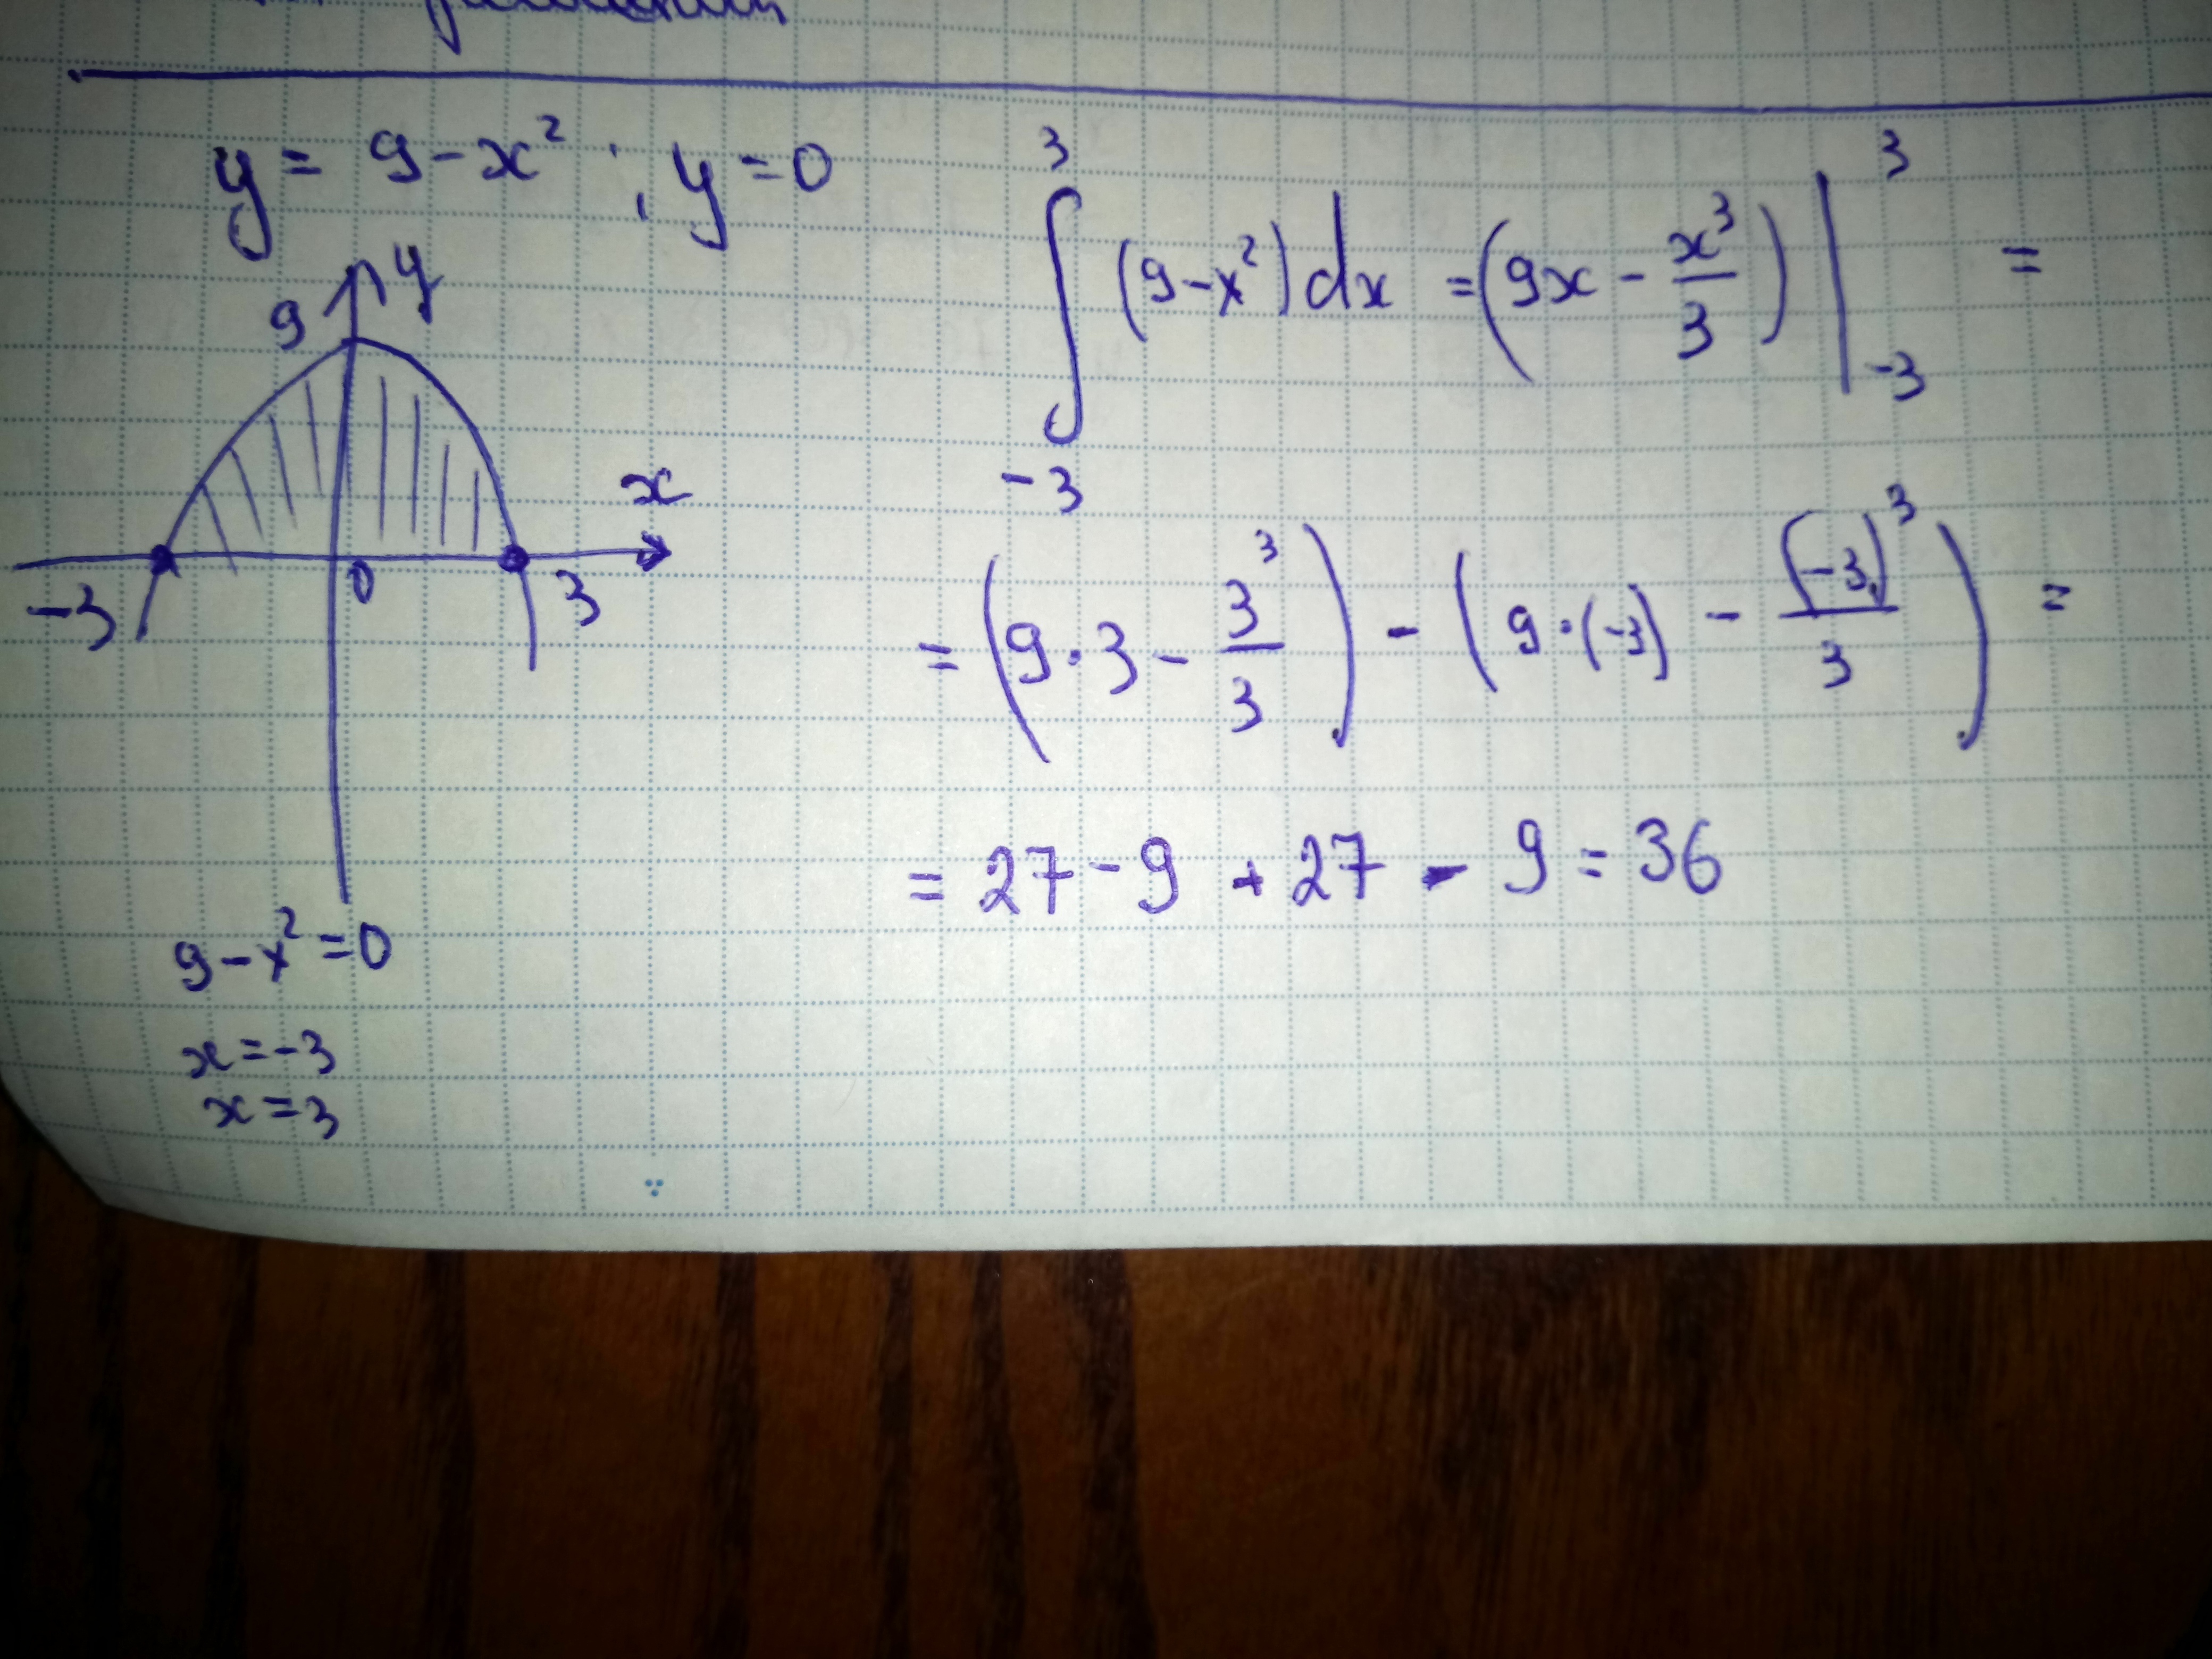 y = 9 - x² ; y = 0
y
9
x
-3 0 3
9 - x² = 0
x = -3
x = 3
∫₋₃³ (9 - x²) dx = (9x - x³/3) |₋₃³ =
= (9 · 3 - 3³/3) - (9 · (-3) - (-3)³/3) =
= 27 - 9 + 27 - 9 = 36